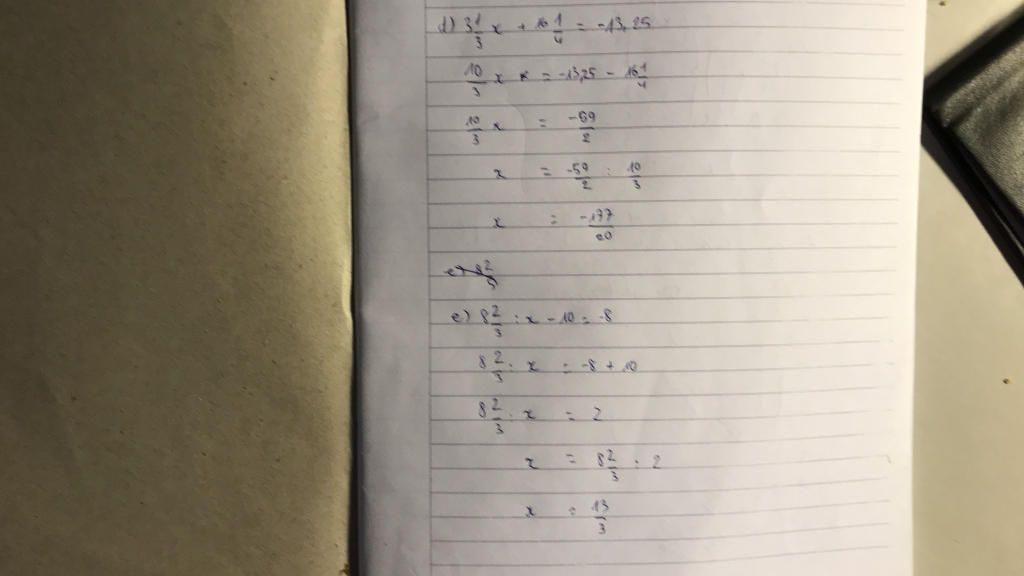 d) 3 1/3 x + 16 1/4 = -13,25
10/3 x = -13,25 - 16 1/4
10/3 x = -59/2
x = -59/2 : 10/3
x = -177/20
e) 8 2/3 : x - 10 = -8
8 2/3 : x = -8 + 10
8 2/3 : x = 2
x = 8 2/3 : 2
x = 13/3